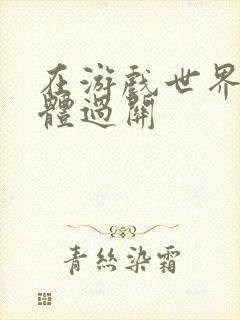 在游戏世界
體過關
青絲染霜